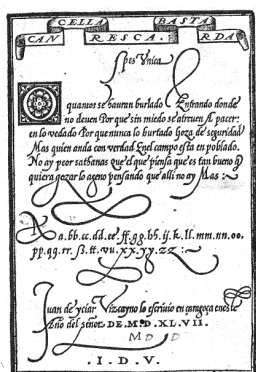 CANCELLARESCA. BASTARDA
Spes Vnica
O quantos se hauran burlado Entrando donde
no deuen Porque sin miedo se atreuen A pacer:
en lo vedado Porque nunca lo hurtado Goza de seguridad
Mas quien anda con verdad En el campo esta en poblado.
No ay peor sathanas que el que piensa que es tan bueno q̃
quiera gozar lo ageno pensando que alli no ay Mas :~
A a.bb.cc.dd.ee ff.gg.hh.ij.k.ll.mm.nn.oo.
pp.qq.rr. ſs.tt.vu.xx.yy.zz :~
Juan de yciar Vizcayno lo escriuio en caragoça en este
Año del señor. DE. M.D. XL. VII.
. I. D. V.